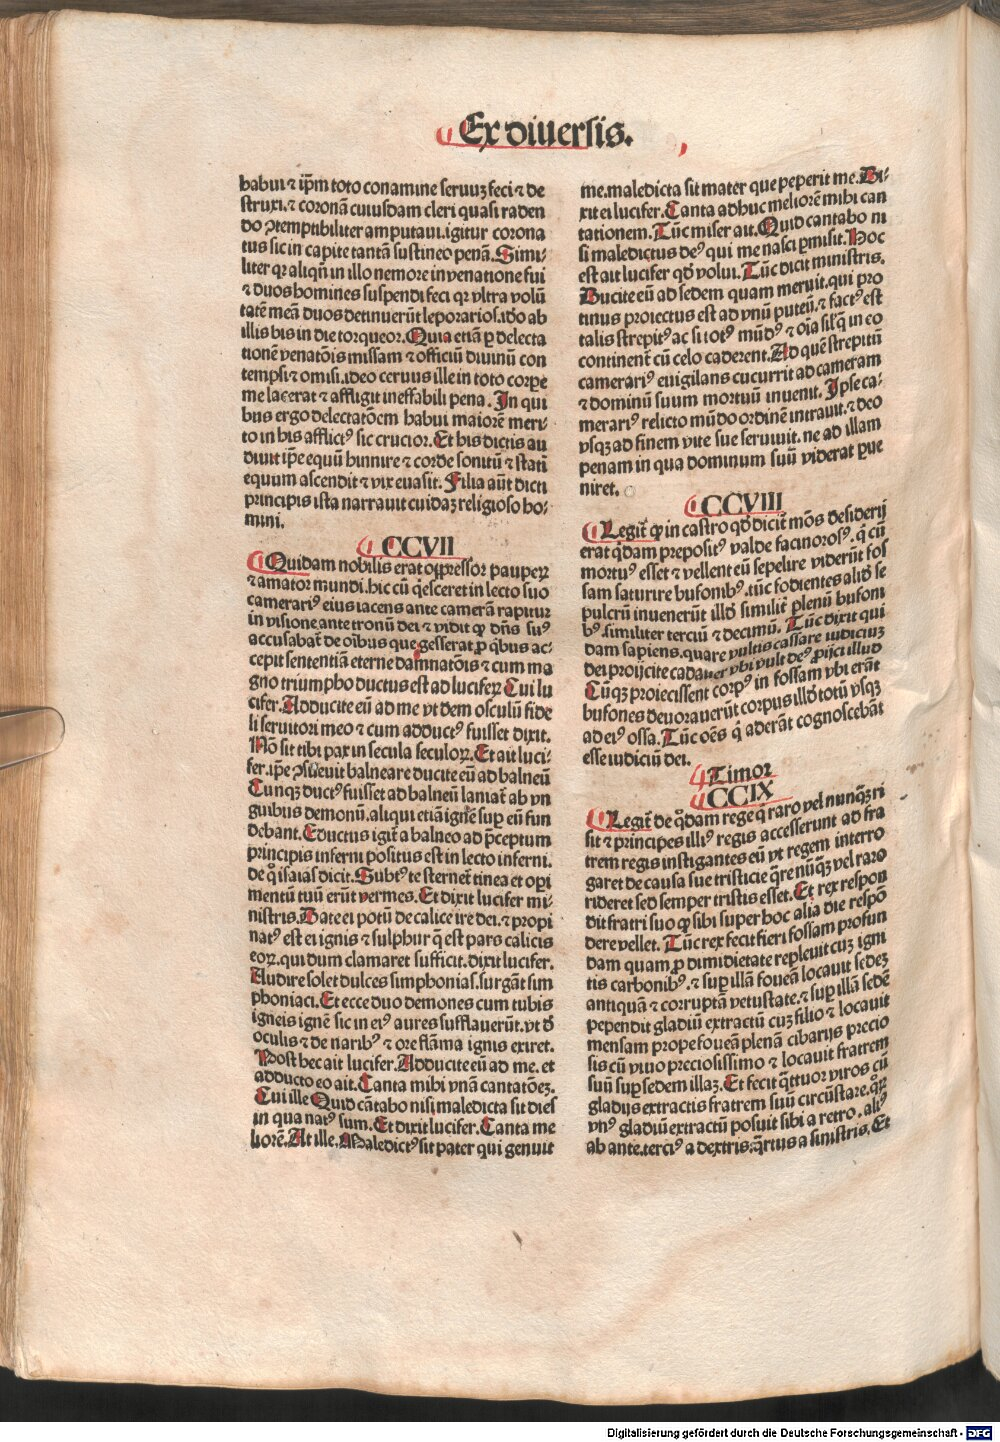 Ex diuersis.
babui ⁊ ip̄m toto conamine seruuꝫ feci ⁊ de
struxi.⁊ coronā cuiusdam cleri quasi raden
do ꝯtemptibiliter amputaui.igitur corona
tus sic in capite tantā sustineo penā.Simi⸗
liter qꝛ aliqn̄ in illo nemore in venatione fui
⁊ duos homines suspendi feci qꝛ vltra volū
tatē meā duos detinuerūt leporarios.ido ab
illis bis in die torqueor.Quia etiā ꝑ delecta
tionē venatōis missam ⁊ officiū diuinū con
tempsi ⁊ omisi.ideo ceruus ille in toto corꝑe
me lacerat ⁊ affligit ineffabili pena.In qui
bus ergo delectatōem babui maiorē meri⸗
to in bis afflictꝰ sic crucior.Et bis dictis au
diuit ip̄e equū binnire ⁊ corde sonitū ⁊ stati
equum ascendit ⁊ vix euasit.Filia aūt dicti
principis ista narrauit cuidaꝫ religioso bo⸗
mini.
CCVII
Quidam nobilis erat opp̄ressor pauperꝝ
⁊ amator mundi.bic cū q̄esceret in lecto suo
camerariꝰ eius iacens ante camerā rapitur
in visione.ante tronū dei ⁊ vidit ꝙ dn̄s suꝰ
accusabat̄ de oībus que gesserat ꝓ qͥbus ac⸗
cepit sententiā eterne damnatōis ⁊ cum ma
gno triumpho ductus est ad luciferꝝ Cui lu
cifer.Adducite eū ad me vt dem osculū fide
li seruitori meo ⁊ cum adductꝰ fuisset dixit.
Nō sit tibi pax in secula seculoꝝ.Et ait luci⸗
fer.ip̄e ꝯsueuit balneare ducite eū ad balneū
Cunqꝫ ductꝰ fuisset ad balneū laniat̄ ab vn
guibus demonū.aliqui etiā ignē suꝑ eū fun
debant.Eductus igit̄ a balneo ad p̄ceptum
principis inferni positus est in lecto inferni.
de qͦ isaias dicit.Subtꝰ te sternet̄ tinea et oꝑi
mentū tuū erūt vermes.Et dixit lucifer mi⸗
nistris.Date ei potū de calice ire dei.⁊ propi
natꝰ est ei ignis ⁊ sulphur q̄ est pars calicis
eoꝝ.qui dum clamaret sufficit.dixit lucifer.
Audire solet dulces simphonias.surgāt sim
phoniaci.Et ecce duo demones cum tubis
igneis ignē sic in eiꝰ aures sufflauerūt.vt đ
oculis ⁊ de naribꝰ ⁊ ore flāma ignis exiret.
Post bec ait lucifer.Adducite eū ad me.et
adducto eo ait.Canta mibi vnā cantatōeꝫ.
Cui ille Quid cātabo nisi maledicta sit dies
in qua natꝰ sum.Et dixit lucifer.Canta me
liorē.At ille.Maledictꝰ sit pater qui genuit
me.maledicta sit mater que peperit me.Di⸗
xit ei lucifer.Canta adbuc meliorē mibi can
tationem.Tūc miser ait.Quid cantabo ni
si maledictus deꝰ qui me nasci ꝑmisit.Hoc
est ait lucifer qđ volui.Tūc dicit ministris.
Ducite eū ad sedem quam meruit.qui pro
tinus proiectus est ad vnū puteū.⁊ factꝰ est
talis strepitꝰ ac si totꝰ mūdꝰ ⁊ oīa sil̄ q̄ in eo
continent̄ cū celo caderent.Ad quē strepitū
camerariꝰ euigilans cucurrit ad cameram
⁊ dominū suum mortuū inuenit.Ipse ca⸗
merariꝰ relicto mūdo ordinē intrauit.⁊ deo
vsqꝫ ad finem vite sue seruiuit.ne ad illam
penam in qua dominum suū viderat ꝑue
niret.
CCVIII
Legit̄ ꝙ in castro qđ dicit̄ mōs desiderij
erat qͥdam prepositꝰ valde facinorosꝰ.q̄ cū
mortuꝰ esset ⁊ vellent eū sepelire viderūt fos
sam saturire bufonibꝰ.tūc fodientes aliđ se
pulcrū inuenerūt illđ similit̄ plenū bufoni
bꝰ.similiter terciū ⁊ decimū.Tūc dixit qui
dam sapiens.quare vultis cassare iudiciuꝫ
dei proijcite cadauer vbi vult deꝰ ꝓijci illud
Cūqꝫ proiecissent corpꝰ in fossam vbi erāt
bufones deuorauerūt corpus illđ totū vsqꝫ
ad eiꝰ ossa.Tūc oēs q̄ aderāt cognoscebāt
esse iudiciū dei.
Timor
CCIX
Legit̄ de qͦdam rege qͥ raro vel nunqꝫ ri
sit ⁊ principes illiꝰ regis accesserunt ad fra
trem regis instigantes eū vt regem interro
garet de causa sue tristicie qͣre nūqꝫ vel raro
rideret sed semper tristis esset.Et rex respon
dit fratri suo ꝙ sibi super hoc alia die respō
dere vellet.Tūc rex fecit fieri fossam profun
dam quam ꝓ dimidietate repleuit cuꝫ igni
tis carbonibꝰ.⁊ suꝑ illā foueā locauit sedeꝫ
antiquā ⁊ corruptā vetustate.⁊ suꝑ illā sedē
pependit gladiū extractū cuꝫ filio ⁊ locauit
mensam prope foueā plenā cibarijs precio
sis cū vino preciosissimo ⁊ locauit fratrem
suū suꝑ sedem illaꝫ.Et fecit qͣttuor viros cū
gladijs extractis fratrem suū circūstare.qͦꝝ
vnꝰ gladiū extractū posuit sibi a retro.aliꝰ
ab ante.terciꝰ a dextris.qͣrtus a sinistris.Et
Digitalisierung gefördert durch die Deutsche Forschungsgemeinschaft - DFG